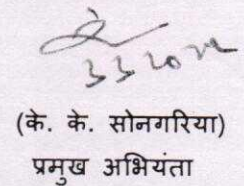 (के. के. सोनगरिया)
प्रमुख अभियंता